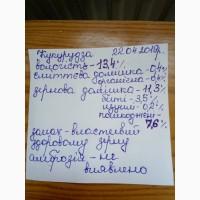 Кукурудза 22.04.2019р.
вологість - 13,4%
сміттєва домішка - 0,4%
органічна - 0,4%
зернова домішка - 11,3%
биті - 3,5%
щуплі - 0,2%
пошкоджені -
7,6%
запах - властивий
здоровому зерну
амброзія - не
виявлено